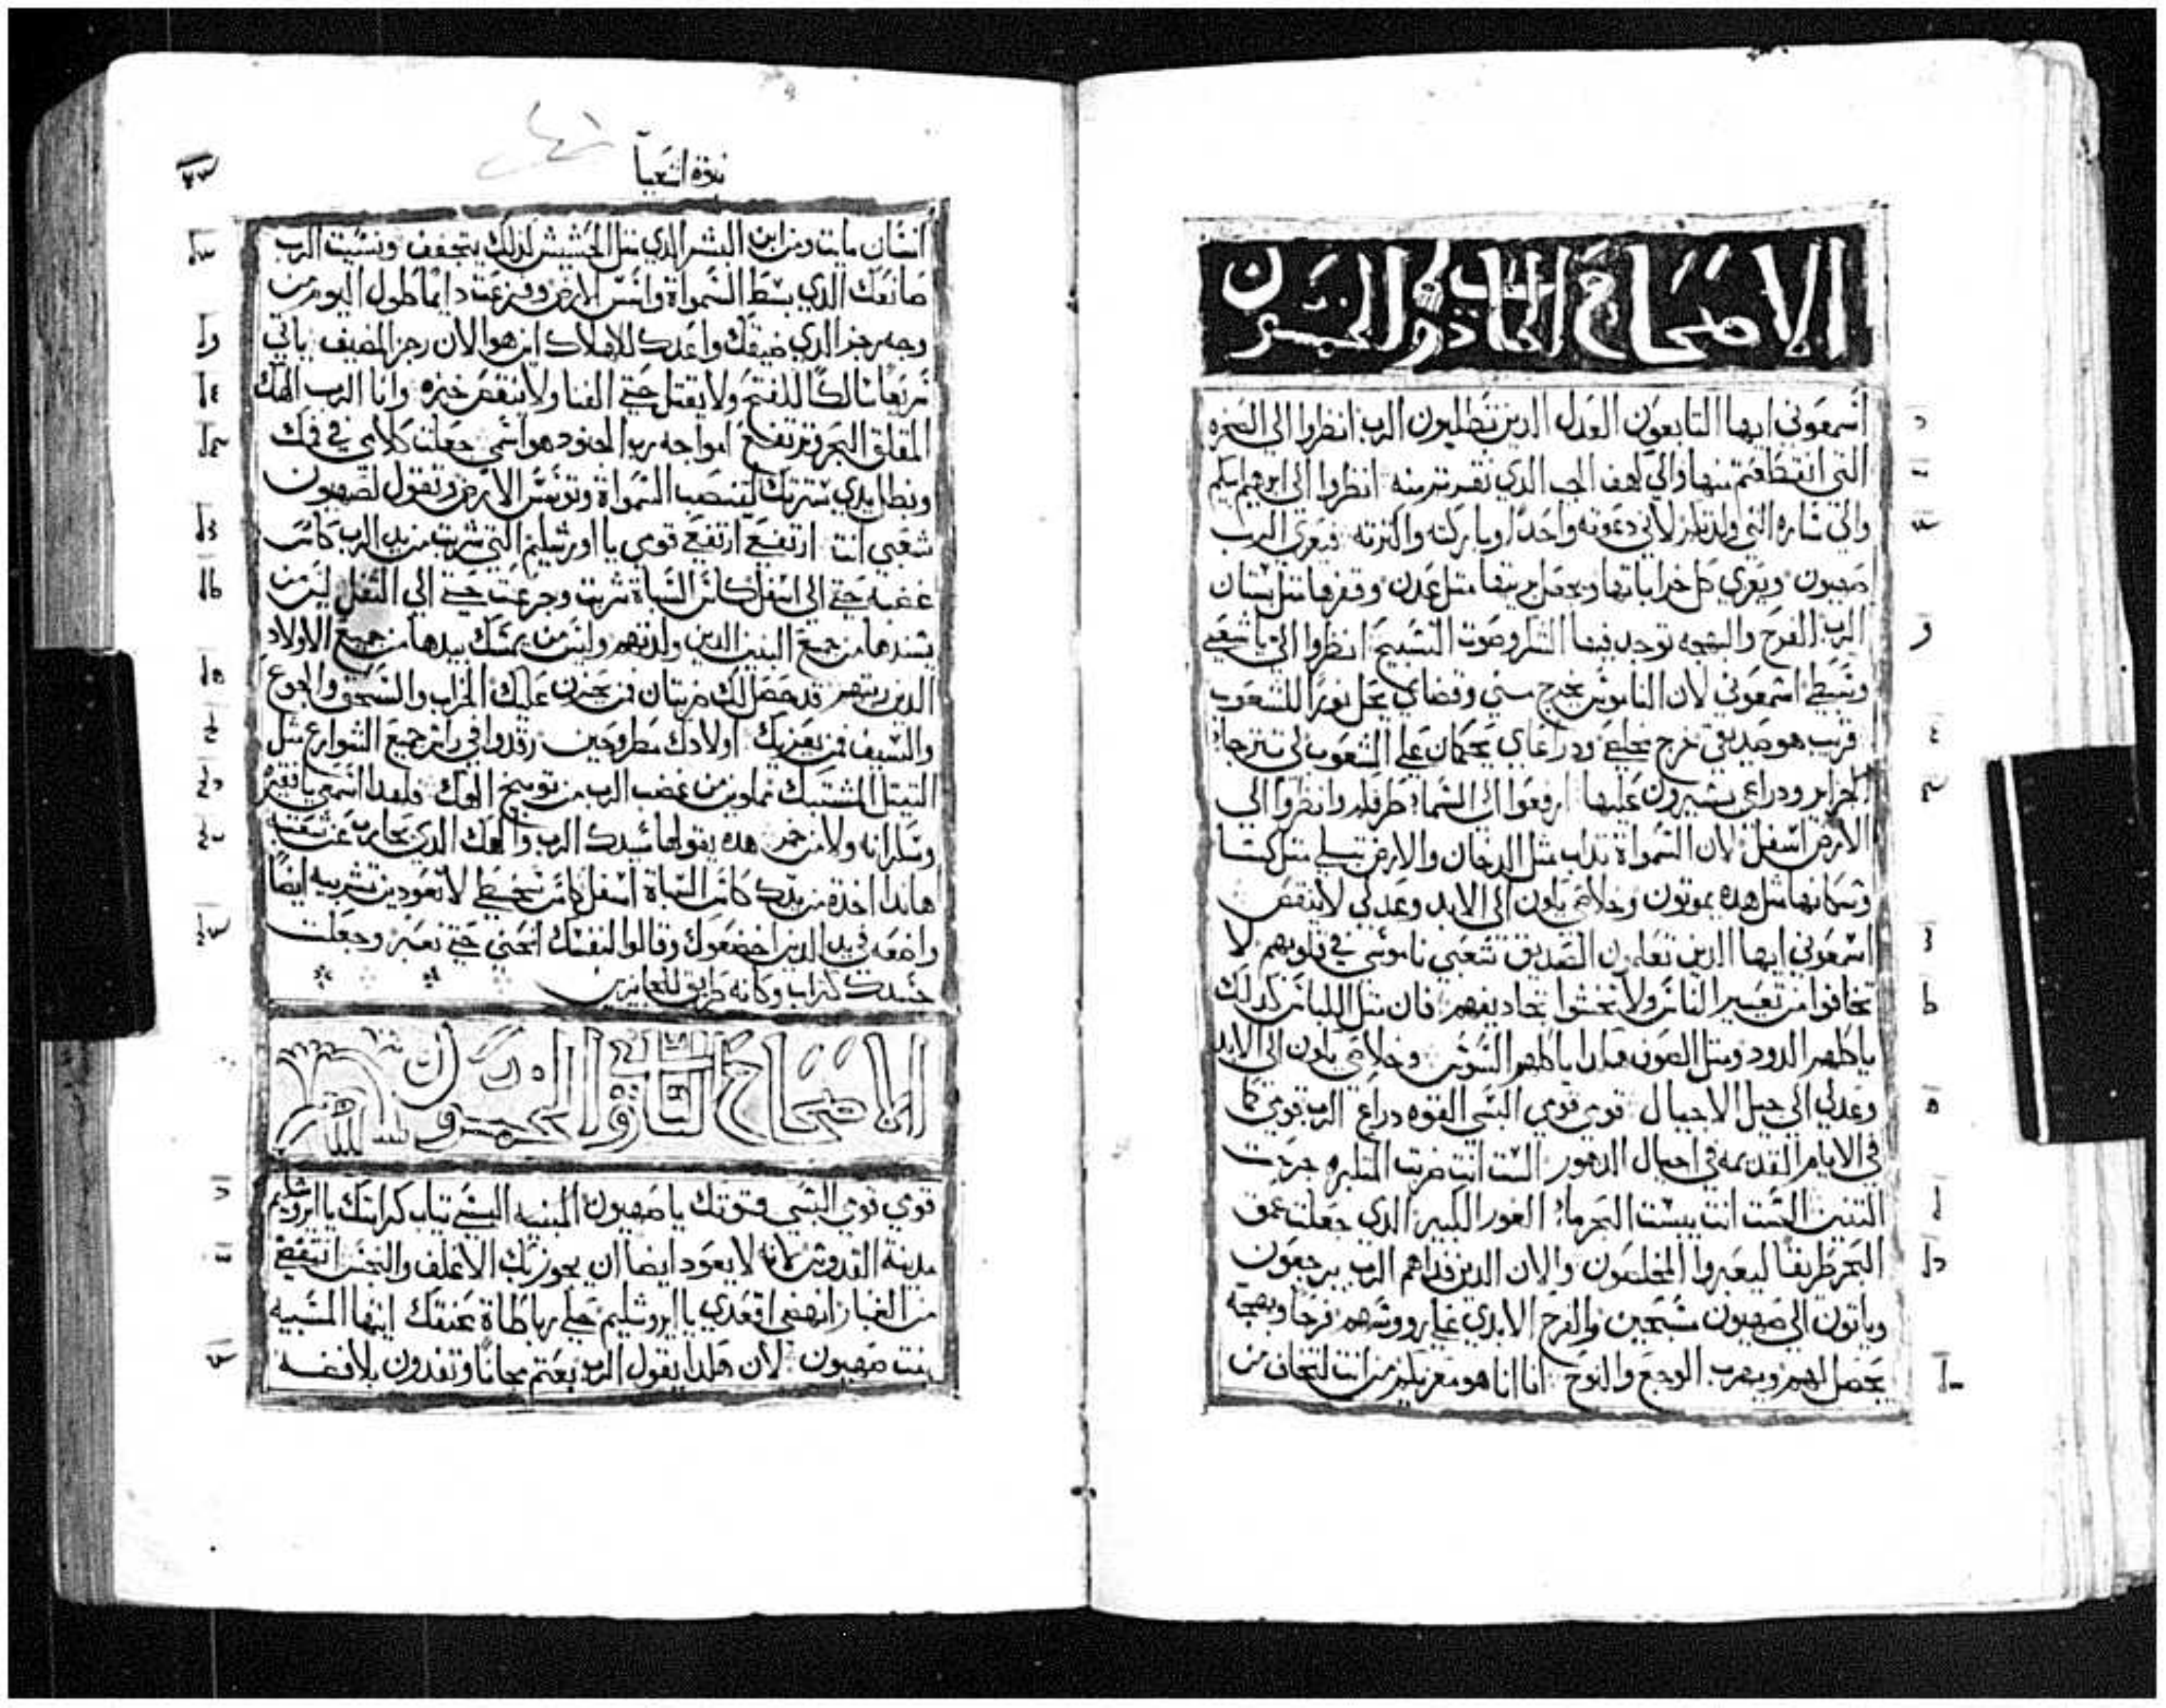 الاصحاح الحادي والخمسون
اسمعوني ايها التابعون العدل الدين تطلبون الرب انظروا الي الصخره
التي انقطعتم منها والي الجب الدي منه انظروا الي ابرهيم ابيكم
والي ساره التي ولدتكم لاني دعوته واحدًا وباركته واكترته فيعزي الرب
صهيون ويعزي كل خراباتها ويجعل بريتها متل عدن وقفرها متل بستان
الرب الفرح والبهجه توجد فيها الشكر وصوت التسبيح انظروا الي يا شعبي
وسبطي اسمعوني لان الناموس يخرج مني وقضاي يحل نورًا للشعوب
قريب هو صديقي خرج مخلصي ودراعاي يحكمان علي الشعوب لي تترجاء
الجزاير ودراعي يشيرون عليها ارفعوا الي السماء طرفكم وانظروا الي
الارض اسفل لان السمواة تداب متل الدخان والارض تبلي متل كسا
وسكانها متل هده يموتون وخلاصي يكون الي الابد وعدلي لا ينقص
اسمعوني ايها الدين تعلمون الصديق شعبي ناموسي في قلوبهم لا
تخافوا من تعيير الناس ولا تخشوا تجاديفهم فان متل اللباس كدلك
ياكلهم الدود ومتل الصوف هكدا ياكلهم السوس وخلاصي يكون الي الابد
وعدلي الي جيل الاجيال قومي قومي البسي القوه دراع الرب قومي كما
في الايام القديمه في اجيال الدهور الست انت ضربت المتكبره جرحت
التنين الست انت يبست البحر ماء الغور الكبير الدي جعلت عمق
البحر طريقًا ليعبروا المخلصون والان الدين فداهم الرب يرجعون
وياتون الي صهيون مسبحين والفرح الابدي علي رووسهم فرحًا وبهجة
يحصل لهم ويهرب الوجع والنوح انا انا هو معزيكم من انت لتخاف من
نبوة اشعيا
انسان مايت ومن ابن البشر الدي متل الحشيش لدلك يتجفف ونسيت الرب
صانعك الدي بسط السمواة واسس الارض وفزعت دايمًا طول اليوم من
وجه رجز الدي ضيقك واعدك للاهلاك اين هو الان رجز المضيف ياتي
سريعًا سالكًا للفتح ولا يقتل حتي الفنا ولا ينقص خبزه وانا الرب الهك
المقلق البحر فترتفع امواجه رب الجنود هو اسمي جعلت كلامي في فمك
وبظل يدي سترتك لتنصب السمواة وتوسس الارض وتقول لصهيون
شعبي انت ارتفعي ارتفعي قومي يا اورشليم التي شربت من يد الرب كاس
غضبه حتي الي اسفل كاس السباة شربت وجرعت حتي الي التفل ليس من
يسندها من جميع البنين الدين ولدتهم وليس من يمسك بيدها من جميع الاولاد
الدين ربتهم قد حصل لك ضربتان فمن يحزن عليك الخراب والسحق والجوع
والسيف فمن يعزيك اولادك مطروحين رقدوا في راس جميع الشوارع متل
التيتل المشتبك مملوين من غضب الرب من توبيخ الهك فلهدا اسمعي يا فقيره
وسكرانه ولا من خمر هده يقولها سيدك الرب والهك الدي يحارب عن شعبه
هاندا اخدة من يدك كاس السباة اسفل كاس سخطي لا تعودين تشربيه ايضًا
واضعه في يد الدين اخضعوك وقالوا لنفسك انحني حتي نعبر وجعلت
جسدك كتراب وكانه طريق للعابرين
الاصحاح التاني والخمسون
قومي قومي البسي قوتك يا صهيون المبنيه البسي تياب كرامتك يا ايروشليم
مدينة القدوس لانه لا يعود ايضا ان يجوز بك الاغلف والنجس انتفضي
من الغبار انهضي اقعدي يا ايروشليم حلي رباطاة عنقك ايتها المسبيه
بنت صهيون لان هكدا يقول الرب بعتم مجانًا وتفدون بلا فضه